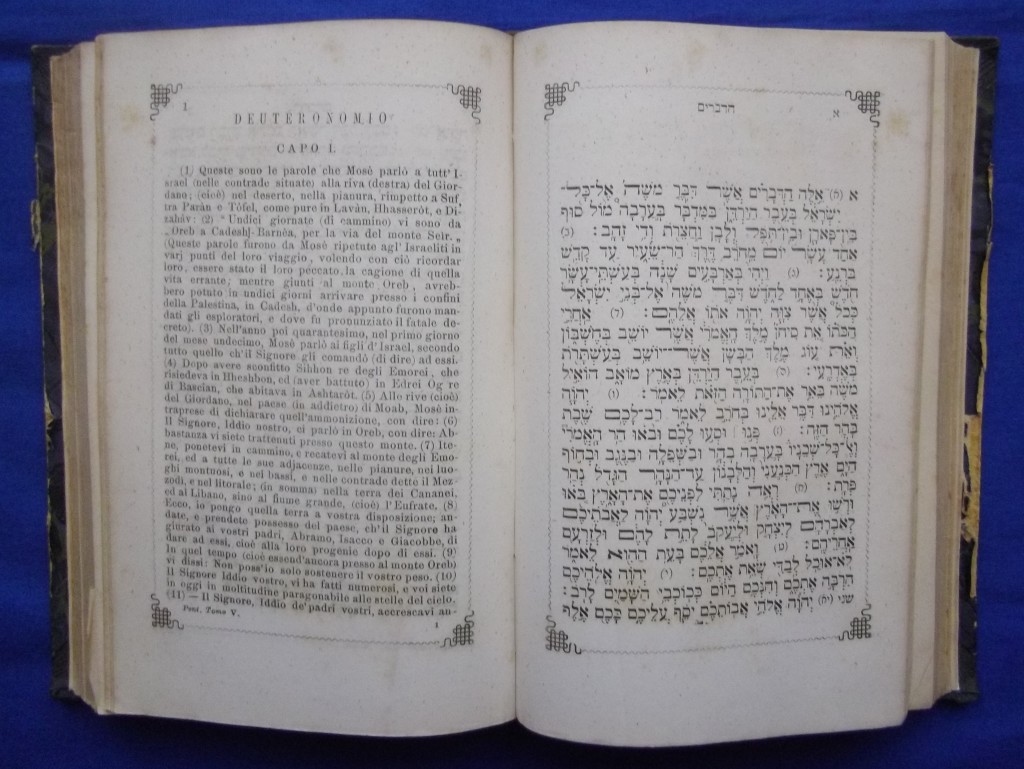 1
DEUTERONOMIO
CAPO I.
(1) Queste sono le parole che Mosè parlò a tutt' I-
srael (nelle contrade situate) alla riva (destra) del Gior-
dano; (cioè) nel deserto, nella pianura, rimpetto a Suf,
tra Paràn e Tòfel, come pure in Lavàn, Hhasseròt, e Di-
zaháv: (2) "Undici giornate (di cammino) vi sono da
„Oreb a Cadeshj-Barnèa, per la via del monte Seir.„
(Queste parole furono da Mosè ripetute agl' Israeliti in
varj punti del loro viaggio, volendo con ciò ricordar
loro, essere stato il loro peccato la cagione di quella
vita errante; mentre giunti al monte Oreb, avreb-
bero potuto in undici giorni arrivare presso i confini
della Palestina, in Cadesh, d'onde appunto furono man-
dati gli esploratori, e dove fu pronunziato il fatale de-
creto). (3) Nell'anno poi quarantesimo, nel primo giorno
del mese undecimo, Mosè parlò ai figli d'Israel, secondo
tutto quello ch'il Signore gli comandò (di dire) ad essi.
(4) Dopo avere sconfitto Sihhon re degli Emorei, che
risiedeva in Hheshbon, ed (aver battuto) in Edrei Og re
di Bascian, che abitava in Ashtaròt. (5) Allo rive (cioè)
del Giordano, nel paese (in addietro) di Moab, Mosè in-
traprese di dichiarare quell'ammonizione, con dire: (6)
Il Signore, Iddio nostro, ci parlò in Oreb, con dire: Ab-
bastanza vi siete trattenuti presso questo monte. (7) Ite-
ne, ponetevi in cammino, e recatevi al monte degli Emo-
rei, ed a tutte le sue adjacenze, nelle pianure, nei luo-
ghi montuosi, e nei bassi, e nelle contrade dette il Mez-
zodì, e nel litorale; (in somma) nella terra dei Cananei,
ed al Libano, sino al fiume grande, (cioè) l'Eufrate. (8)
Ecco, io pongo quella terra a vostra disposizione; an-
date, e prendete possesso del paese, ch'il Signore ha
giurato ai vostri padri, Abramo, Isacco e Giacobbe, di
dare ad essi, cioè alla loro progenie dopo di essi. (9)
In quel tempo (cioè essend'ancora presso al monte Oreb)
vi dissi: Non poss'io solo sostenere il vostro peso. (10)
Il Signore Iddio vostro, vi ha fatti numerosi, e voi siete
in oggi in moltitudine paragonabile alle stelle del cielo.
(11) — Il Signore, Iddio de' padri vostri, accrescavi an-
Pent. Tomo V.
1
הדברים
א
א (א) אֵלֶּה הַדְּבָרִים אֲשֶׁר דִּבֶּר מֹשֶׁה אֶל־כָּל־
יִשְׂרָאֵל בְּעֵבֶר הַיַּרְדֵּן בַּמִּדְבָּר בָּעֲרָבָה מוֹל סוּף
בֵּין־פָּארָן וּבֵין־תֹּפֶל וְלָבָן וַחֲצֵרֹת וְדִי זָהָב: (ב)
אַחַד עָשָׂר יוֹם מֵחֹרֵב דֶּרֶךְ הַר־שֵׂעִיר עַד קָדֵשׁ
בַּרְנֵעַ: (ג) וַיְהִי בְּאַרְבָּעִים שָׁנָה בְּעַשְׁתֵּי־עָשָׂר
חֹדֶשׁ בְּאֶחָד לַחֹדֶשׁ דִּבֶּר מֹשֶׁה אֶל־בְּנֵי יִשְׂרָאֵל
כְּכֹל אֲשֶׁר צִוָּה יְהוָֹה אֹתוֹ אֲלֵהֶם: (ד) אַחֲרֵי
הַכֹּתוֹ אֵת סִיחֹן מֶלֶךְ הָאֱמֹרִי אֲשֶׁר יוֹשֵׁב בְּחֶשְׁבּוֹן
וְאֵת עוֹג מֶלֶךְ הַבָּשָׁן אֲשֶׁר־יוֹשֵׁב בְּעַשְׁתָּרֹת
בְּאֶדְרֶעִי: (ה) בְּעֵבֶר הַיַּרְדֵּן בְּאֶרֶץ מוֹאָב הוֹאִיל
מֹשֶׁה בֵּאֵר אֶת־הַתּוֹרָה הַזֹּאת לֵאמֹר: (ו) יְהוָֹה
אֱלֹהֵינוּ דִּבֶּר אֵלֵינוּ בְּחֹרֵב לֵאמֹר רַב־לָכֶם שֶׁבֶת
בָּהָר הַזֶּה: (ז) פְּנוּ | וּסְעוּ לָכֶם וּבֹאוּ הַר הָאֱמֹרִי
וְאֶל־כָּל־שְׁכֵנָיו בָּעֲרָבָה בָהָר וּבַשְּׁפֵלָה וּבַנֶּגֶב וּבְחוֹף
הַיָּם אֶרֶץ הַכְּנַעֲנִי וְהַלְּבָנוֹן עַד־הַנָּהָר הַגָּדֹל נְהַר
פְּרָת: (ח) רְאֵה נָתַתִּי לִפְנֵיכֶם אֶת־הָאָרֶץ בֹּאוּ
וּרְשׁוּ אֶת־הָאָרֶץ אֲשֶׁר נִשְׁבַּע יְהוָֹה לַאֲבֹתֵיכֶם
לְאַבְרָהָם לְיִצְחָק וּלְיַעֲקֹב לָתֵת לָהֶם וּלְזַרְעָם
אַחֲרֵיהֶם: (ט) וָאֹמַר אֲלֵכֶם בָּעֵת הַהִוא לֵאמֹר
לֹא־אוּכַל לְבַדִּי שְׂאֵת אֶתְכֶם: (י) יְהוָֹה אֱלֹהֵיכֶם
הִרְבָּה אֶתְכֶם וְהִנְּכֶם הַיּוֹם כְּכוֹכְבֵי הַשָּׁמַיִם לָרֹב:
שני (יא) יְהוָֹה אֱלֹהֵי אֲבוֹתֵכֶם יֹסֵף עֲלֵיכֶם כָּכֶם אֶלֶף